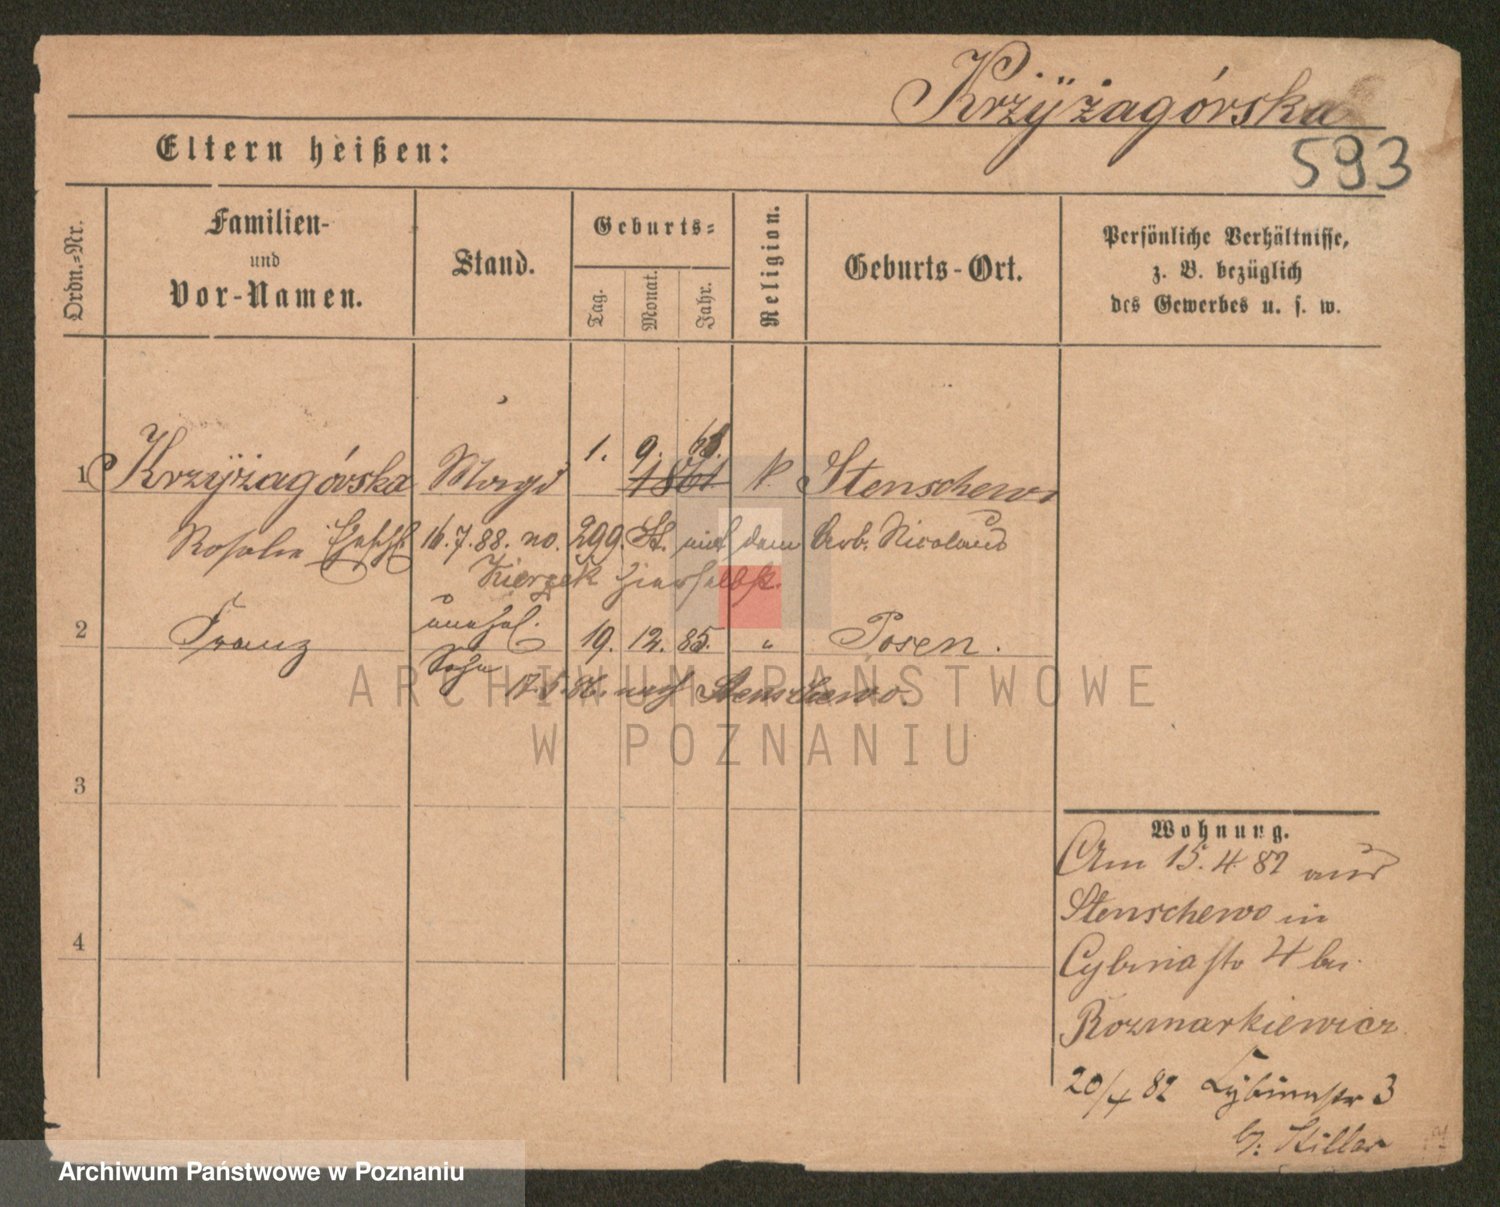 Krzyżagórska
Eltern heißen:
593
Ordn.-Nr.
Familien-
und
Vor-Namen.
Stand.
Geburts-
Tag.
Monat.
Jahr.
Religion.
Geburts-Ort.
Persönliche Verhältnisse,
z. B. bezüglich
des Gewerbes u. s. w.
1. 9. 68.
1 Krzyżagórska Magd 1861 k Stenschewo
Rosalie 16.7.88. no. 299. St. mit dem Arb. Nicolaus
Kierzek hierselbst.
2 Franz unehel. 19. 12. 85. " Posen.
Sohn
17.5.86. nach Stenschewo.
ARCHIWUM PAŃSTWOWE
W POZNANIU
3
4
Wohnung.
Am 15.4.82 aus
Stenschewo in
Cybinastr 4 bei
Rozmarkiewicz
20/4 82 Cybinastr 3
b. Stiller
Archiwum Państwowe w Poznaniu